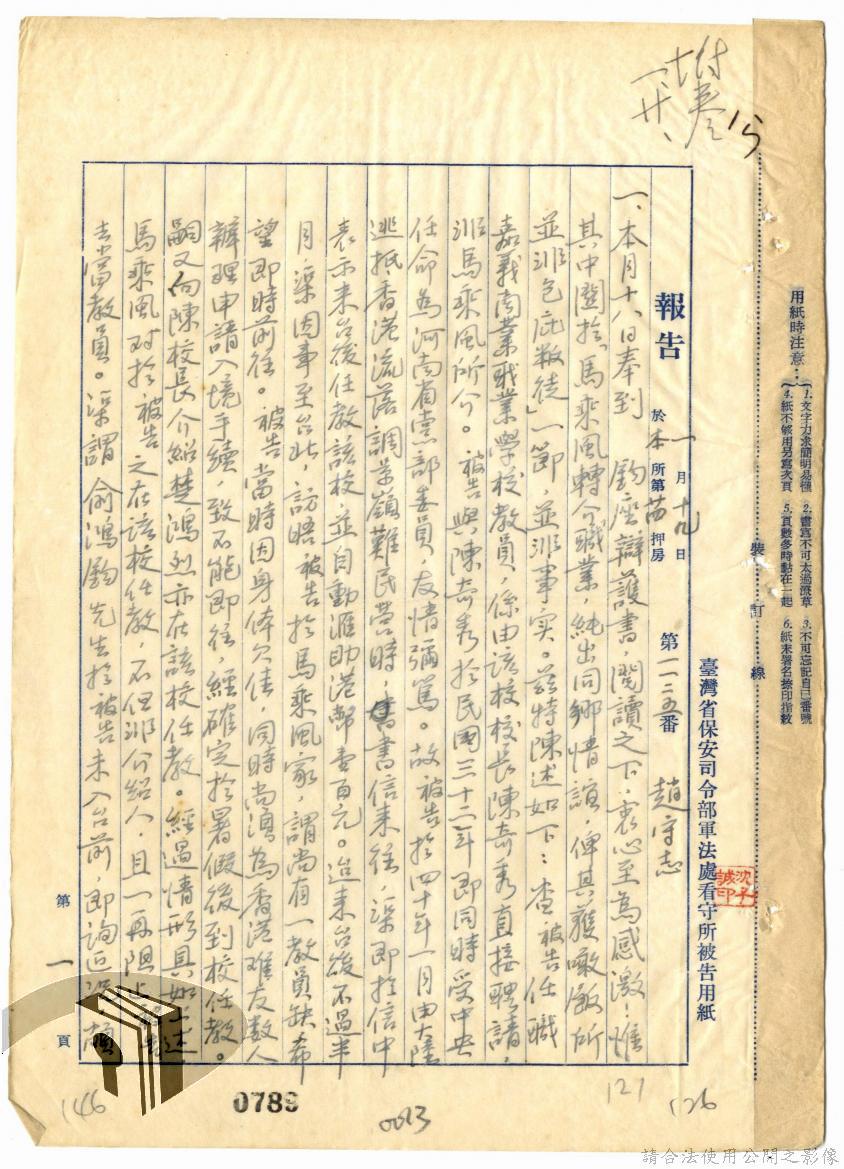 附卷
七、
一、廿八、
15
用紙時注意：
1. 文字力求簡明易懂
2. 書寫不可太過潦草
3. 不可忘記自己番號
4. 紙不够用另寫次頁
5. 頁數多時黏在一起
6. 紙末署名捺印指紋
裝訂線
臺灣省保安司令部軍法處看守所被告用紙
報告 一月十九日 於本所第苗押房 第一一二五番 趙守志
一、本月十八日奉到 鈞座辯護書，閱讀之下，衷心至為感激！惟
其中關於「馬乘風轉介職業，純出同鄉情誼，俾其獲噉飯所
並非包庇叛徒」一節，並非事实。茲特陳述如下：查被告任職
嘉義商業職業學校教員，係由該校校長陳奇秀直接聘請，
非馬乘風所介。被告與陳奇秀於民國三十二年即同時受中央
任命為河南省党部委員，友情彌篤。故被告於四十年一月由大陸
逃抵香港流落調景嶺難民營時，書信來往，渠即於信中
表示來台後任教該校並自動滙助港幣壹百元。迨來台後不過半
月，渠因事至台北，訪晤被告於馬乘風家，謂尚有一教員缺希
望即時前往。被告當時因身体欠佳，同時尚須為香港难友数人
辦理申請入境手續，致不能即往，經確定於暑假後到校任教。
嗣又向陳校長介紹楚鴻烈亦在該校任教。經過情形具如上述
馬乘風对於被告之在該校任教，不但非介紹人，且一再阻止
去當教員。渠謂俞鴻鈞先生於被告未入台前，即詢近況，頗
第一頁
146
0789
0013
121
126
請合法使用公開之影像